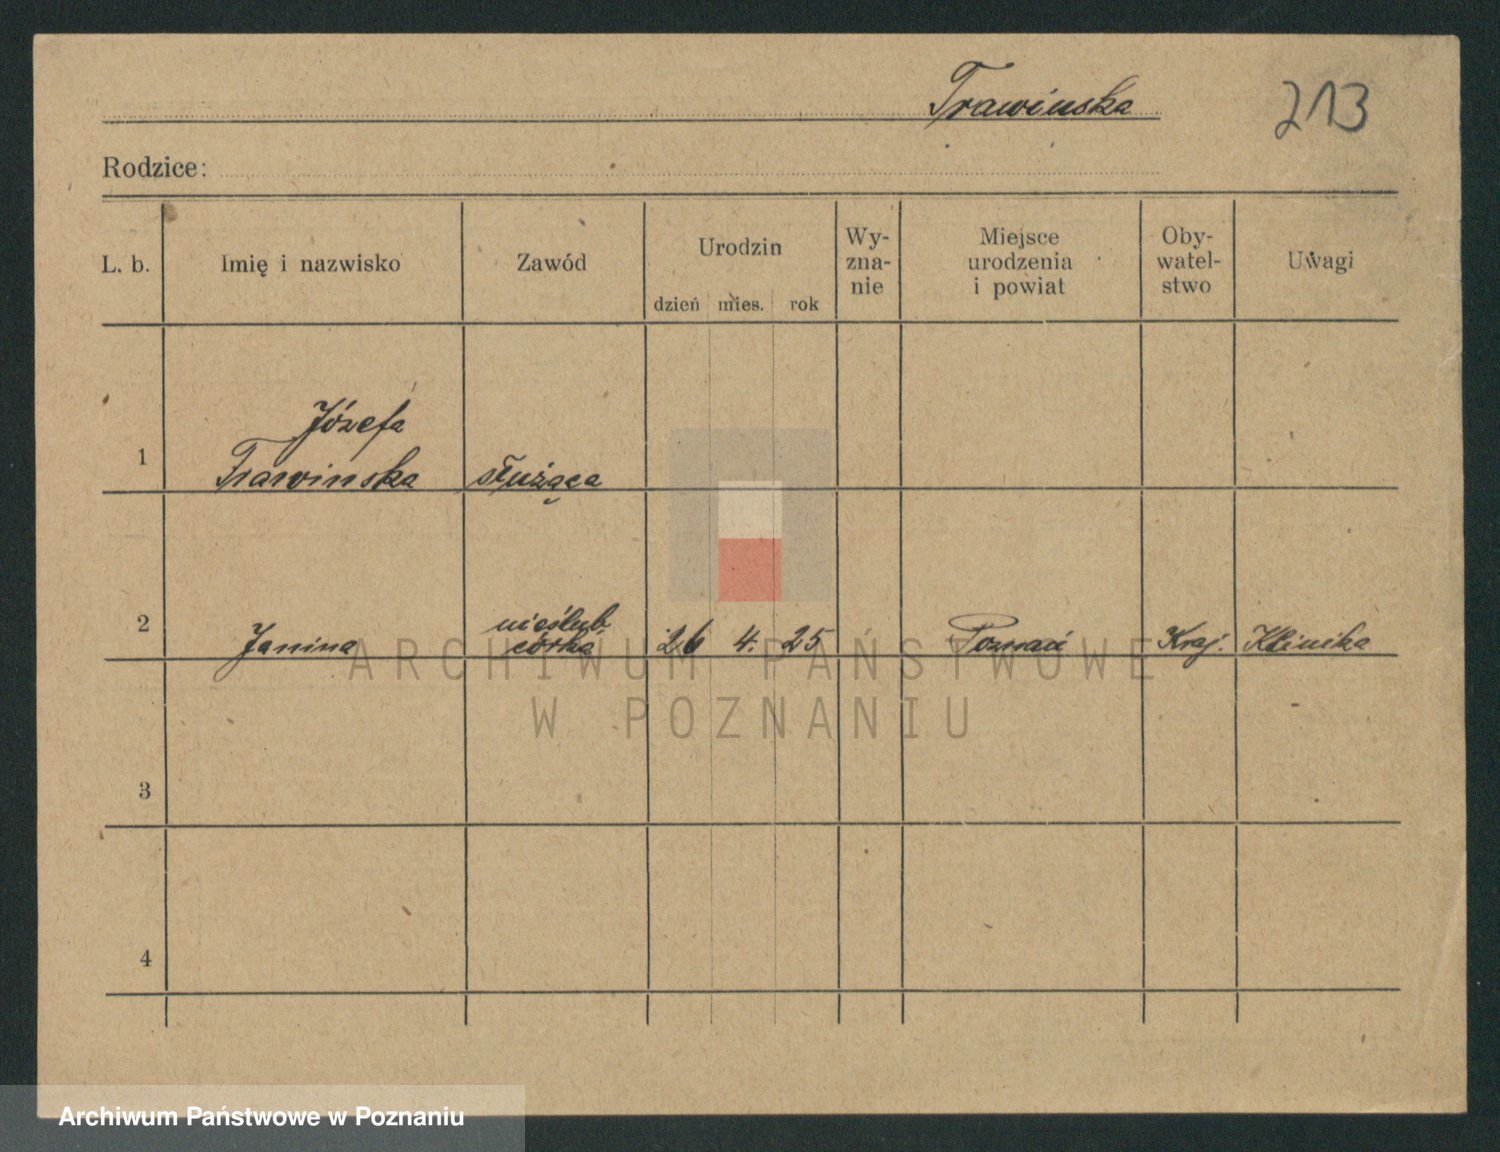 Trawinska
213
Rodzice:
L. b.
Imię i nazwisko
Zawód
Urodzin
dzień mies. rok
Wy-
zna-
nie
Miejsce
urodzenia
i powiat
Oby-
watel-
stwo
Uwagi
1
Józefa
Trawinska
służąca
2
Janina
nieślub
córka
26 4. 25
Poznań
Kraj.
Klinika
3
4
ARCHIWUM PAŃSTWOWE
W POZNANIU
Archiwum Państwowe w Poznaniu